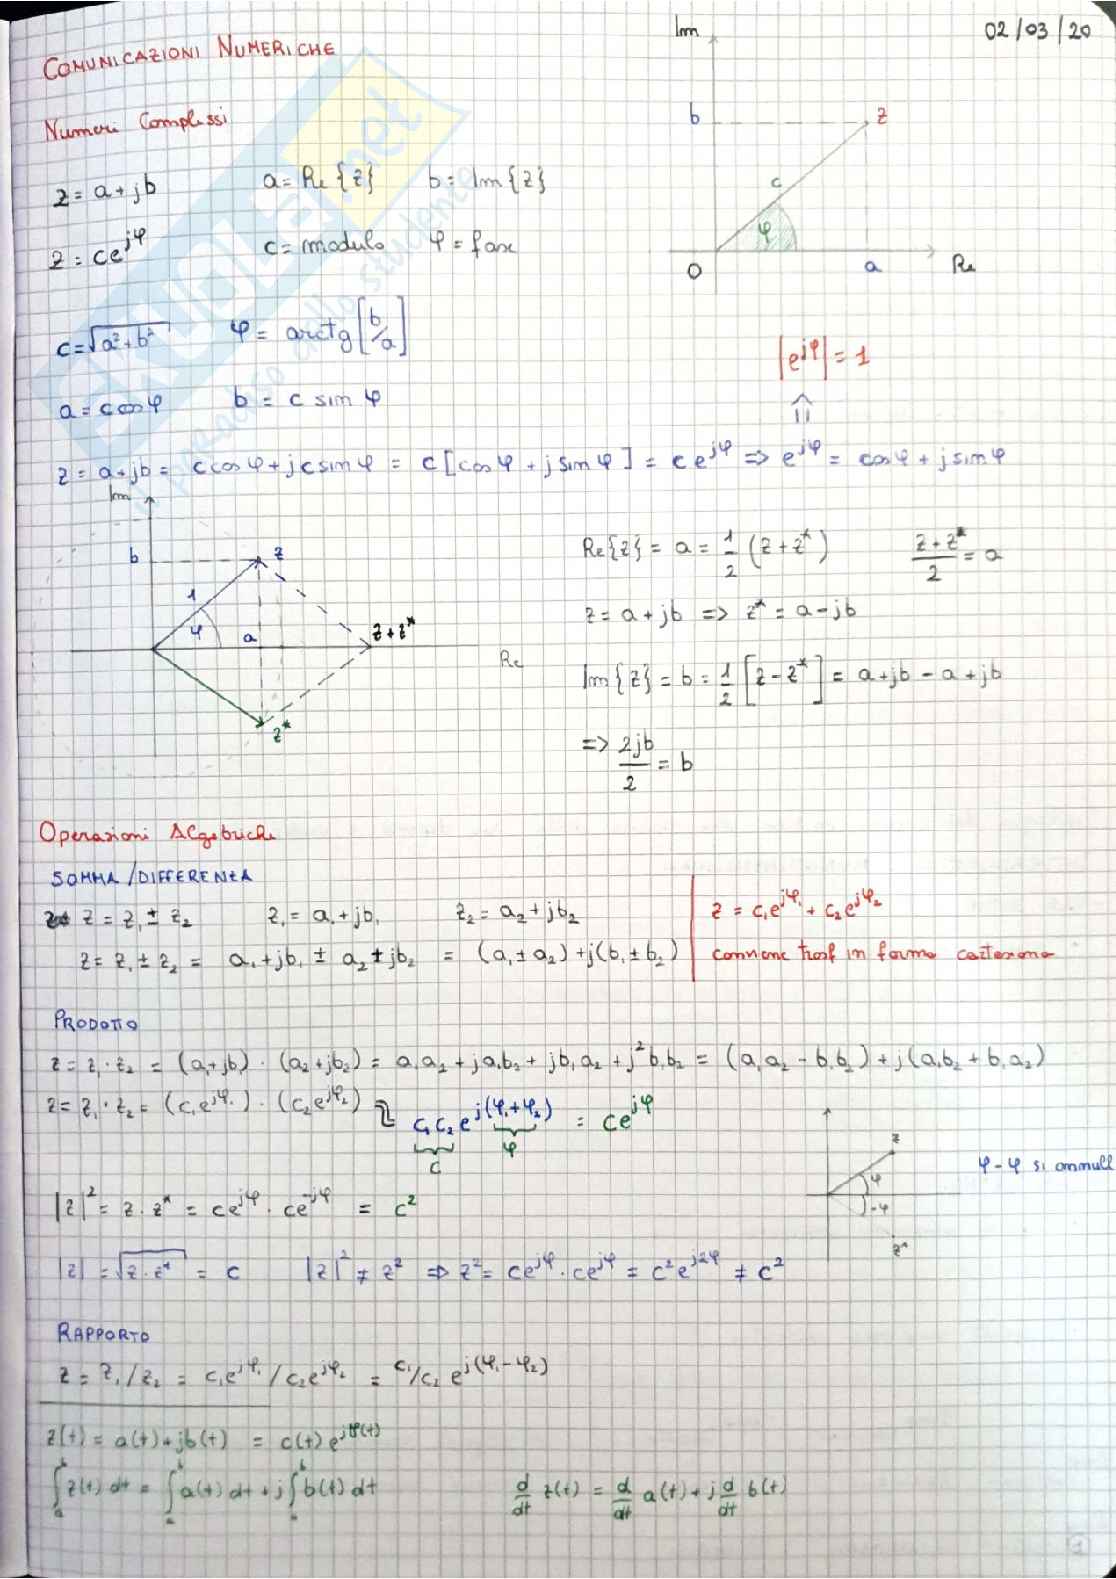 02/03/20
COMUNICAZIONI NUMERICHE
Numeri Complessi
z = a + jb    a = Re{z}    b = Im{z}
z = ce^{jφ}    c = modulo    φ = fase
Im
b    z
c
φ
O    a    Re
c = √(a² + b²)    φ = arctg[b/a]
|e^{jφ}| = 1
⇑
a = c cosφ    b = c sin φ
z = a + jb = c cosφ + jc sinφ = c[cosφ + j sinφ] = ce^{jφ} => e^{jφ} = cosφ + j sinφ
Im
b    z
1
φ    a    z+z*
Re
z*
Re{z} = a = 1/2 (z + z*)    (z + z*)/2 = a
z = a + jb => z* = a - jb
Im{z} = b = 1/2 [z - z*] = a + jb - a + jb
=> 2jb/2 = b
Operazioni Algebriche
SOMMA/DIFFERENZA
z = z₁ ± z₂    z₁ = a₁ + jb₁    z₂ = a₂ + jb₂
z = z₁ ± z₂ = a₁ + jb₁ ± a₂ ± jb₂ = (a₁ ± a₂) + j(b₁ ± b₂)
z = c₁e^{jφ₁} + c₂e^{jφ₂}
conviene trasf in forma cartesiana
PRODOTTO
z = z₁·z₂ = (a₁+jb₁)·(a₂+jb₂) = a₁a₂ + ja₁b₂ + jb₁a₂ + j²b₁b₂ = (a₁a₂ - b₁b₂) + j(a₁b₂ + b₁a₂)
z = z₁·z₂ = (c₁e^{jφ₁})·(c₂e^{jφ₂})    c₁c₂e^{j(φ₁+φ₂)} = ce^{jφ}
c    φ
z
φ
-φ
z*
φ-φ si annull
|z|² = z·z* = ce^{jφ}·ce^{-jφ} = c²
|z| = √(z·z*) = c    |z|² ≠ z² => z² = ce^{jφ}·ce^{jφ} = c²e^{j2φ} ≠ c²
RAPPORTO
z = z₁/z₂ = c₁e^{jφ₁}/c₂e^{jφ₂} = c₁/c₂ e^{j(φ₁-φ₂)}
z(t) = a(t) + jb(t) = c(t)e^{jφ(t)}
∫ₐᵇ z(t)dt = ∫ₐᵇ a(t)dt + j∫ₐᵇ b(t)dt    d/dt z(t) = d/dt a(t) + j d/dt b(t)